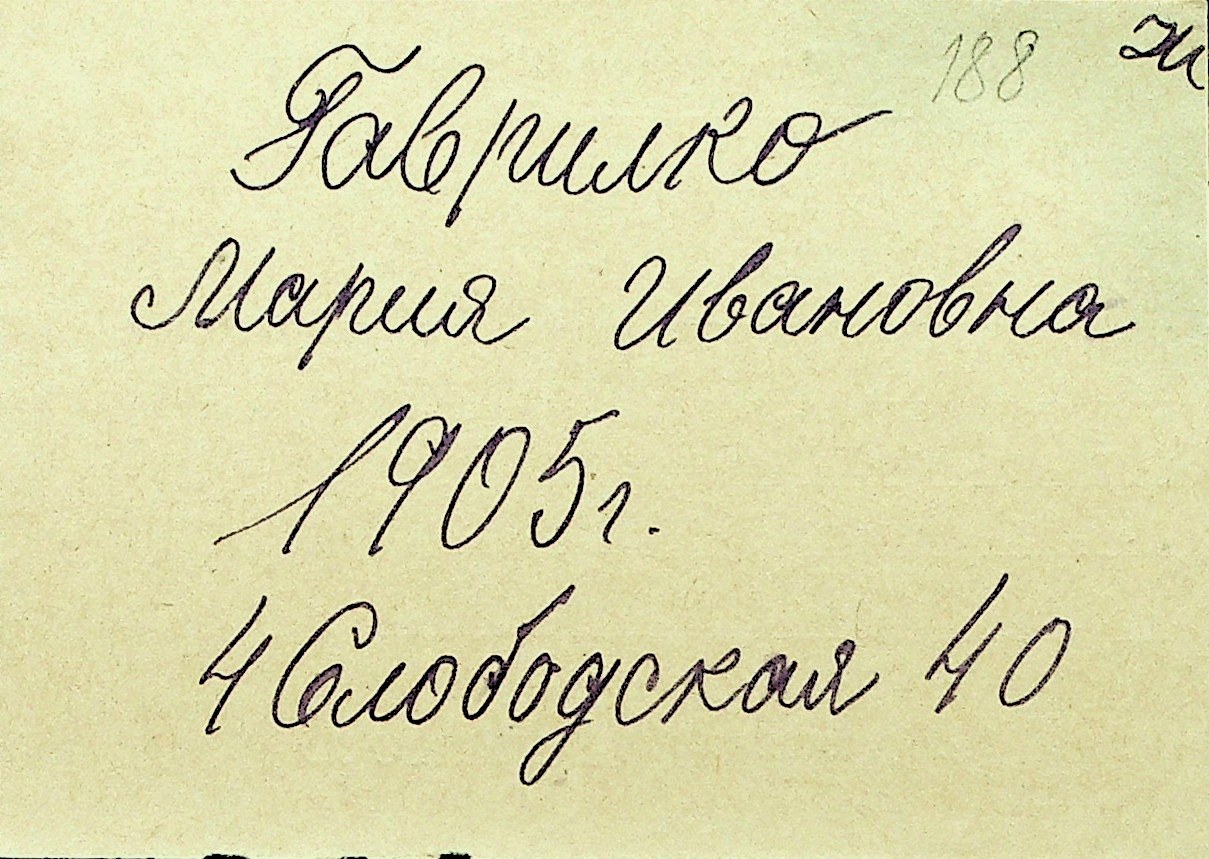 188 ж
Гаврилко
Мария Ивановна
1905г.
4 Слободская 40